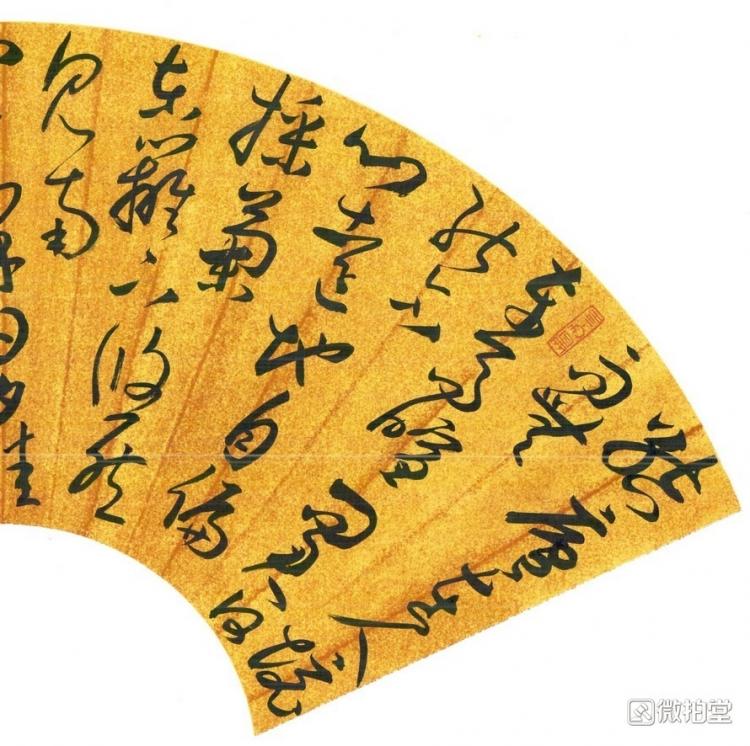 結廬在人
境而無
車馬喧問君何能
爾
心遠地自偏
採菊
東籬下悠然
見南
日夕佳
微拍堂